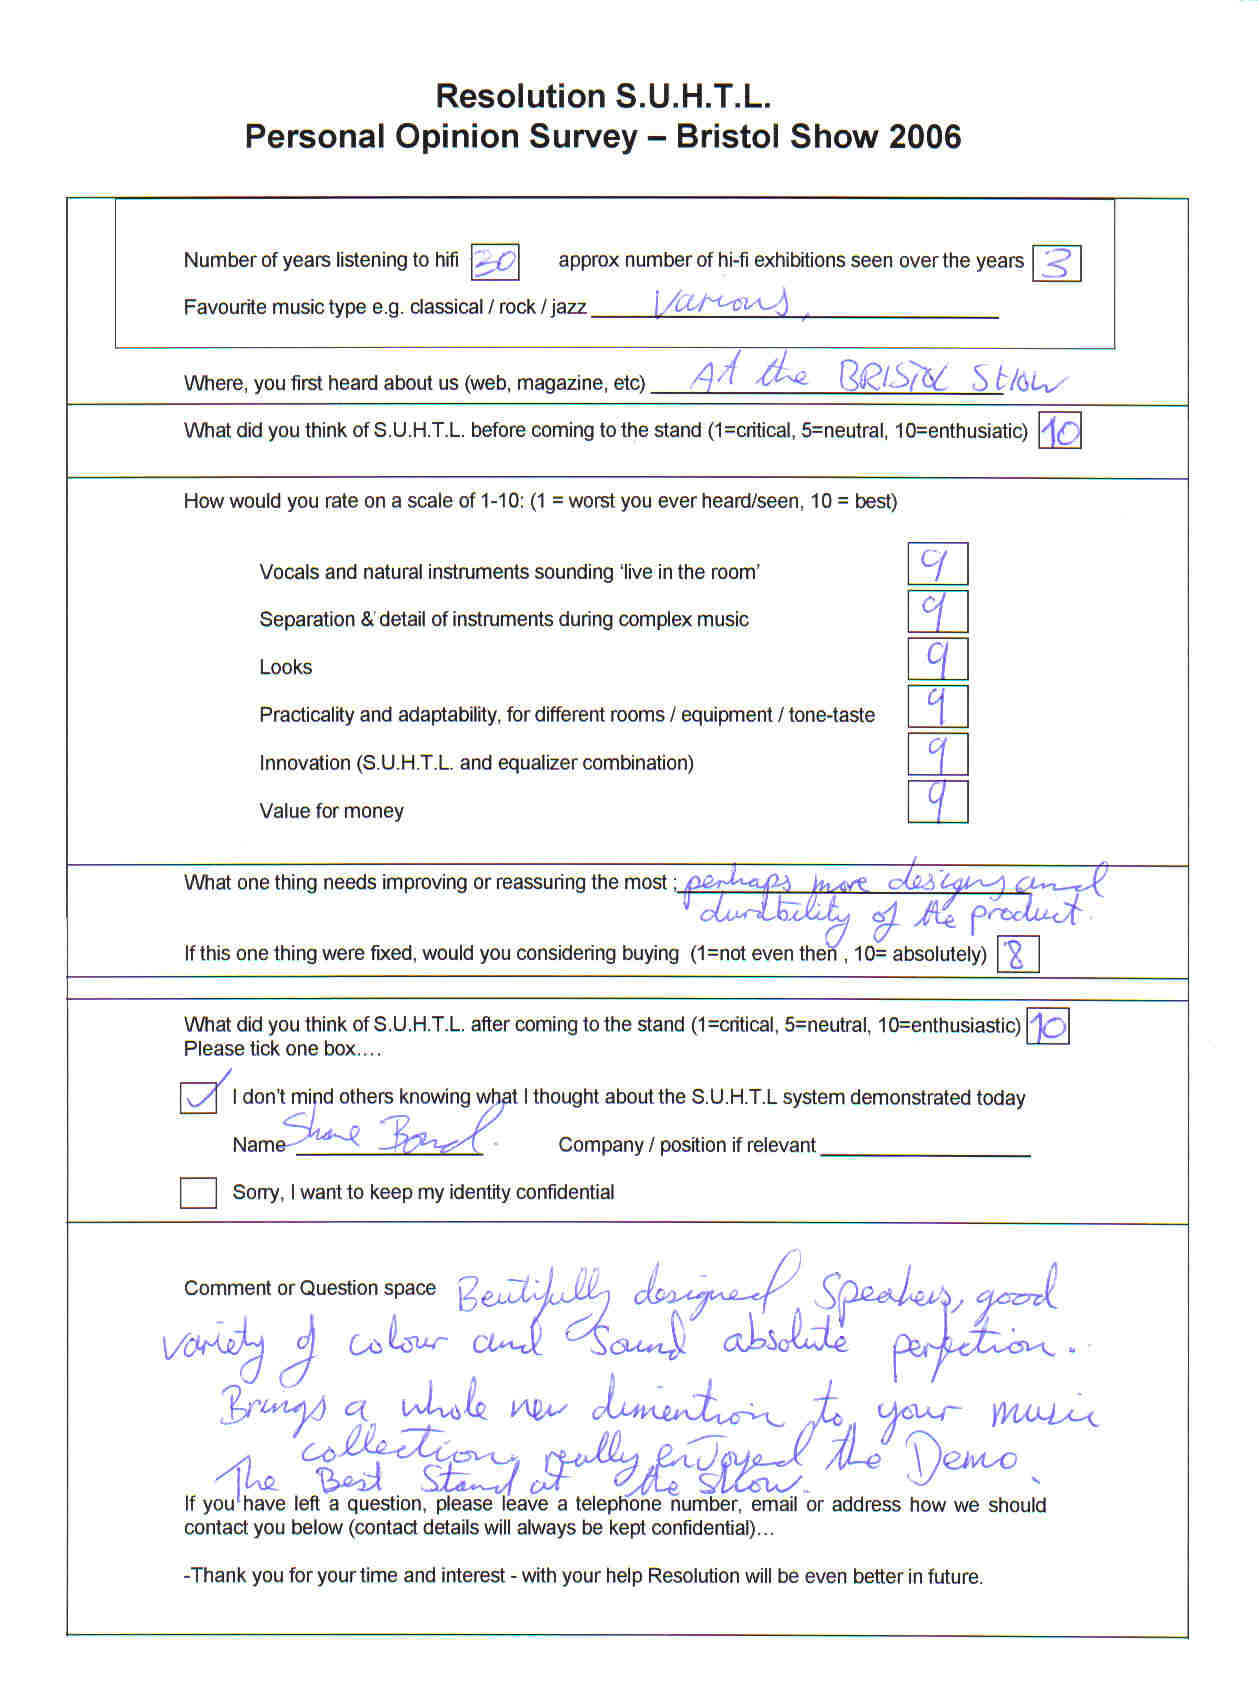 Resolution S.U.H.T.L.
Personal Opinion Survey – Bristol Show 2006
Number of years listening to hifi 30 approx number of hi-fi exhibitions seen over the years 3
Favourite music type e.g. classical / rock / jazz Various,
Where, you first heard about us (web, magazine, etc) At the BRISTOL SHOW
What did you think of S.U.H.T.L. before coming to the stand (1=critical, 5=neutral, 10=enthusiatic) 10
How would you rate on a scale of 1-10: (1 = worst you ever heard/seen, 10 = best)
Vocals and natural instruments sounding ‘live in the room’ 9
Separation & detail of instruments during complex music 9
Looks 9
Practicality and adaptability, for different rooms / equipment / tone-taste 9
Innovation (S.U.H.T.L. and equalizer combination) 9
Value for money 9
What one thing needs improving or reassuring the most : perhaps more designs and
durability of the product.
If this one thing were fixed, would you considering buying (1=not even then , 10= absolutely) 8
What did you think of S.U.H.T.L. after coming to the stand (1=critical, 5=neutral, 10=enthusiastic) 10
Please tick one box....
I don't mind others knowing what I thought about the S.U.H.T.L system demonstrated today
Name Shane Company / position if relevant
Sorry, I want to keep my identity confidential
Comment or Question space Beutifully designed Speakers, good
variety of colour and Sound absolute perfection.
Brings a whole new dimention to your music
collection, really enJoyed the Demo.
The Best Stand at the show.
If you have left a question, please leave a telephone number, email or address how we should
contact you below (contact details will always be kept confidential)...
-Thank you for your time and interest - with your help Resolution will be even better in future.